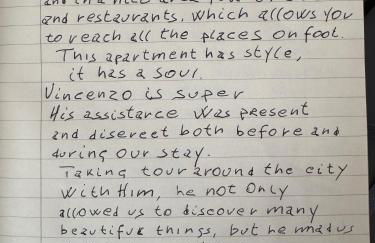 and restaurants, which allows you
to reach all the places on foot.
This apartment has style,
it has a soul.
Vincenzo is super
His assistance was present
and discreet both before and
during our stay.
Taking tour around the city
with Him, he not only
allowed us to discover many
beautiful things, but he